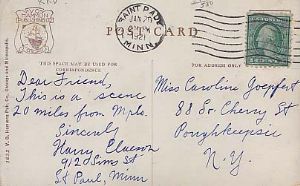 SAINT PAUL
JAN 20
MINN.
POSTCARD
THIS SPACE MAY BE USED FOR
CORRESPONDENCE
FOR ADDRESS ONLY
Dear Friend,
This is a scene
20 miles from Mpls.
Sincerely
Harry
912 Sims St
St Paul, Minn
Miss Caroline Goepfert
88 So. Cherry St
Poughkeepsie
N.Y.